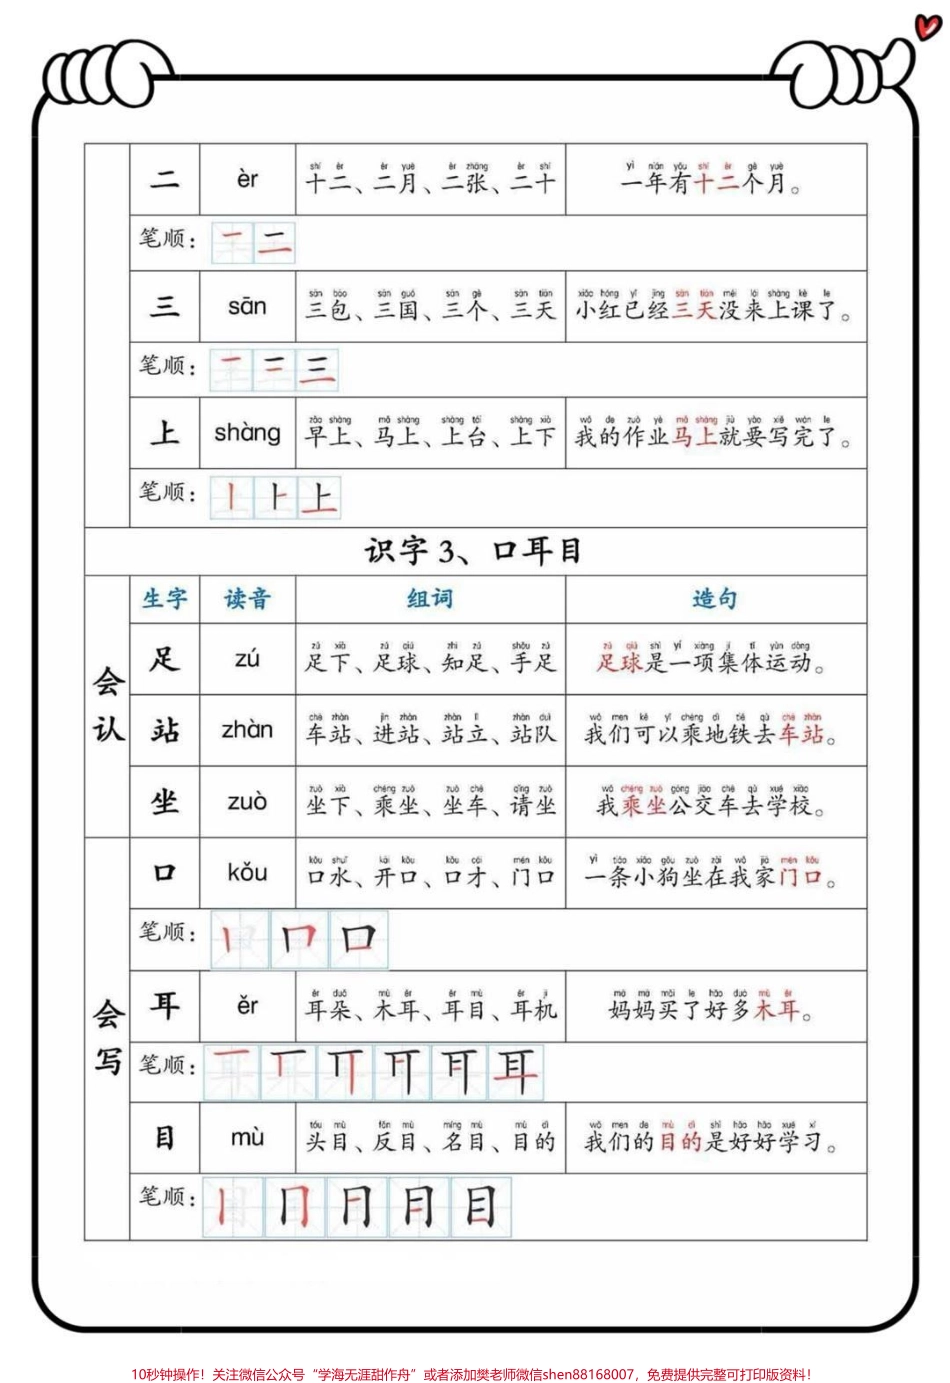 二 èr 十二、二月、二张、二十 一年有十二个月。
shí èr èr yuè èr zhāng èr shí yì nián yǒu shí èr gè yuè
笔顺：
三 sān 三包、三国、三个、三天 小红已经三天没来上课了。
sān bāo sān guó sān gè sān tiān xiǎo hóng yǐ jīng sān tiān méi lái shàng kè le
笔顺：
上 shàng 早上、马上、上台、上下 我的作业马上就要写完了。
zǎo shàng mǎ shàng shàng tái shàng xià wǒ de zuò yè mǎ shàng jiù yào xiě wán le
笔顺：
识字 3、口耳目
生字 读音 组词 造句
会认
足 zú 足下、足球、知足、手足 足球是一项集体运动。
zú xià zú qiú zhī zú shǒu zú zú qiú shì yí xiàng jí tǐ yùn dòng
站 zhàn 车站、进站、站立、站队 我们可以乘地铁去车站。
chē zhàn jìn zhàn zhàn lì zhàn duì wǒ men kě yǐ chéng dì tiě qù chē zhàn
坐 zuò 坐下、乘坐、坐车、请坐 我乘坐公交车去学校。
zuò xià chéng zuò zuò chē qǐng zuò wǒ chéng zuò gōng jiāo chē qù xué xiào
会写
口 kǒu 口水、开口、口才、门口 一条小狗坐在我家门口。
kǒu shuǐ kāi kǒu kǒu cái mén kǒu yì tiáo xiǎo gǒu zuò zài wǒ jiā mén kǒu
笔顺：
耳 ěr 耳朵、木耳、耳目、耳机 妈妈买了好多木耳。
ěr duǒ mù ěr ěr mù ěr jī mā mā mǎi le hǎo duō mù ěr
笔顺：
目 mù 头目、反目、名目、目的 我们的目的是好好学习。
tóu mù fǎn mù míng mù mù dì wǒ men de mù dì shì hǎo hǎo xué xí
笔顺：
10秒钟操作！关注微信公众号“学海无涯甜作舟”或者添加樊老师微信shen88168007，免费提供完整可打印版资料！